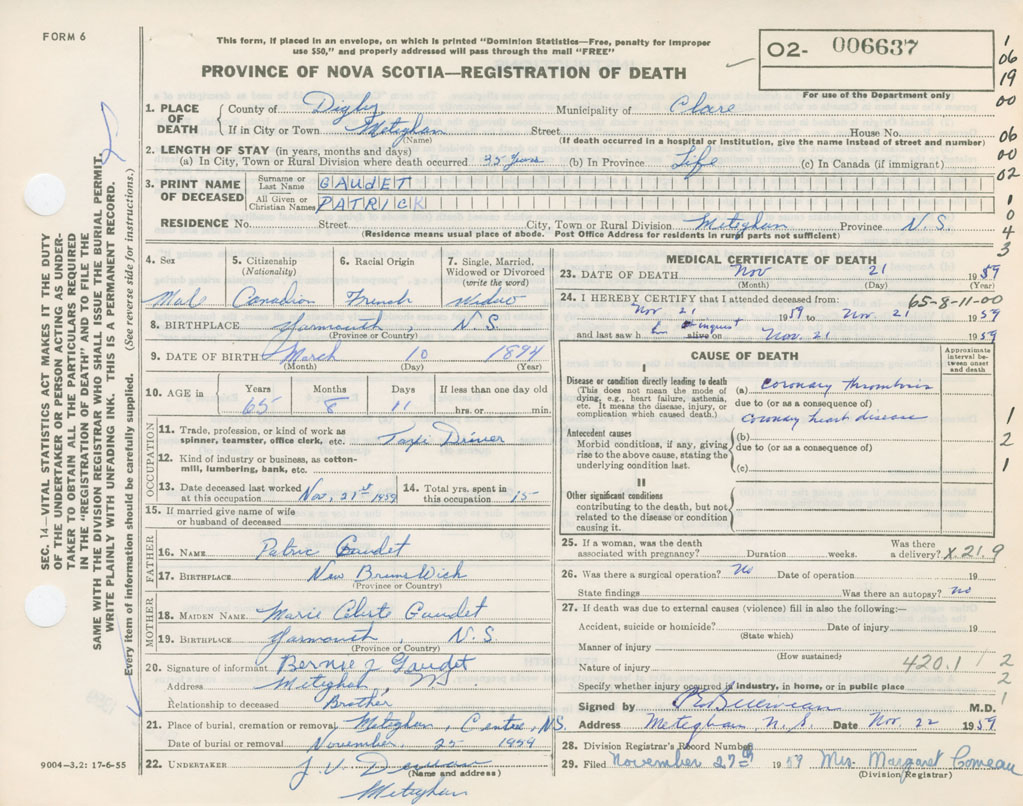 FORM 6
This form, if placed in an envelope, on which is printed "Dominion Statistics—Free, penalty for improper
use $50," and properly addressed will pass through the mail "FREE"
02- 006637
For use of the Department only
PROVINCE OF NOVA SCOTIA—REGISTRATION OF DEATH
1 06 19 00 06 00 02 1 0 4 3
SEC. 14—VITAL STATISTICS ACT MAKES IT THE DUTY
OF THE UNDERTAKER OR PERSON ACTING AS UNDER-
TAKER TO OBTAIN ALL THE PARTICULARS REQUIRED
IN THE "REGISTRATION OF DEATH" AND TO FILE THE
SAME WITH THE DIVISION REGISTRAR WHO SHALL ISSUE THE BURIAL PERMIT.
WRITE PLAINLY WITH UNFADING INK. THIS IS A PERMANENT RECORD.
Every item of information should be carefully supplied. (See reverse side for instructions.)
1. PLACE OF DEATH County of Digby Municipality of Clare
If in City or Town Meteghan Street House No.
(Name) (If death occurred in a hospital or institution, give the name instead of street and number)
2. LENGTH OF STAY (in years, months and days)
(a) In City, Town or Rural Division where death occurred 35 Years (b) In Province Life (c) In Canada (if immigrant)
3. PRINT NAME OF DECEASED
Surname or Last Name GAUDET
All Given or Christian Names PATRICK
RESIDENCE No. Street City, Town or Rural Division Meteghan Province N.S.
(Residence means usual place of abode. Post Office Address for residents in rural parts not sufficient)
4. Sex 5. Citizenship (Nationality) 6. Racial Origin 7. Single, Married, Widowed or Divorced (write the word)
Male Canadian French Widow
8. BIRTHPLACE Yarmouth, N.S.
(Province or Country)
9. DATE OF BIRTH March 10 1894
(Month) (Day) (Year)
10. AGE in Years Months Days If less than one day old
65 8 11 hrs. or min.
OCCUPATION
11. Trade, profession, or kind of work as
spinner, teamster, office clerk, etc. Taxi Driver
12. Kind of industry or business, as cotton-
mill, lumbering, bank, etc.
13. Date deceased last worked at this occupation Nov. 21st 1959
14. Total yrs. spent in this occupation 15
15. If married give name of wife
or husband of deceased
FATHER
16. NAME Patric Gaudet
17. BIRTHPLACE New BrunsWick
(Province or Country)
MOTHER
18. MAIDEN NAME Marie Celeste Gaudet
19. BIRTHPLACE Yarmouth, N.S.
(Province or Country)
20. Signature of informant Bernie J Gaudet
Address Meteghan, NS
Relationship to deceased Brother
21. Place of burial, cremation or removal Meteghan, Centre, N.S.
Date of burial or removal November 25 1959
22. UNDERTAKER J. V. Deveau
(Name and address)
Meteghan
9004—3.2: 17-6-55
MEDICAL CERTIFICATE OF DEATH
23. DATE OF DEATH Nov 21 1959
(Month) (Day) (Year)
24. I HEREBY CERTIFY that I attended deceased from: 65-8-11-00
Nov. 21 1959 to Nov. 21 1959
and last saw h alive on Nov. 21 1959
CAUSE OF DEATH
Approximate interval between onset and death
I
Disease or condition directly leading to death
(This does not mean the mode of
dying, e.g., heart failure, asthenia,
etc. It means the disease, injury, or
complication which caused death.)
(a) Coronary thrombosis
due to (or as a consequence of)
coronary heart disease
Antecedent causes
Morbid conditions, if any, giving
rise to the above cause, stating the
underlying condition last.
(b)
due to (or as a consequence of)
(c)
1 2 1
II
Other significant conditions
contributing to the death, but not
related to the disease or condition
causing it.
25. If a woman, was the death Was there
associated with pregnancy? Duration weeks. a delivery? X.21.9
26. Was there a surgical operation? No Date of operation 19
State findings Was there an autopsy? no
27. If death was due to external causes (violence) fill in also the following:—
Accident, suicide or homicide? Date of injury 19
(State which)
Manner of injury
(How sustained)
Nature of injury 420.1 1 2
2
Specify whether injury occurred in industry, in home, or in public place 1
Signed by M.D.
Address Meteghan, N.S. Date Nov. 22 1959
28. Division Registrar's Record Number
29. Filed November 27th 1959 Mrs. Margaret Comeau
(Division Registrar)